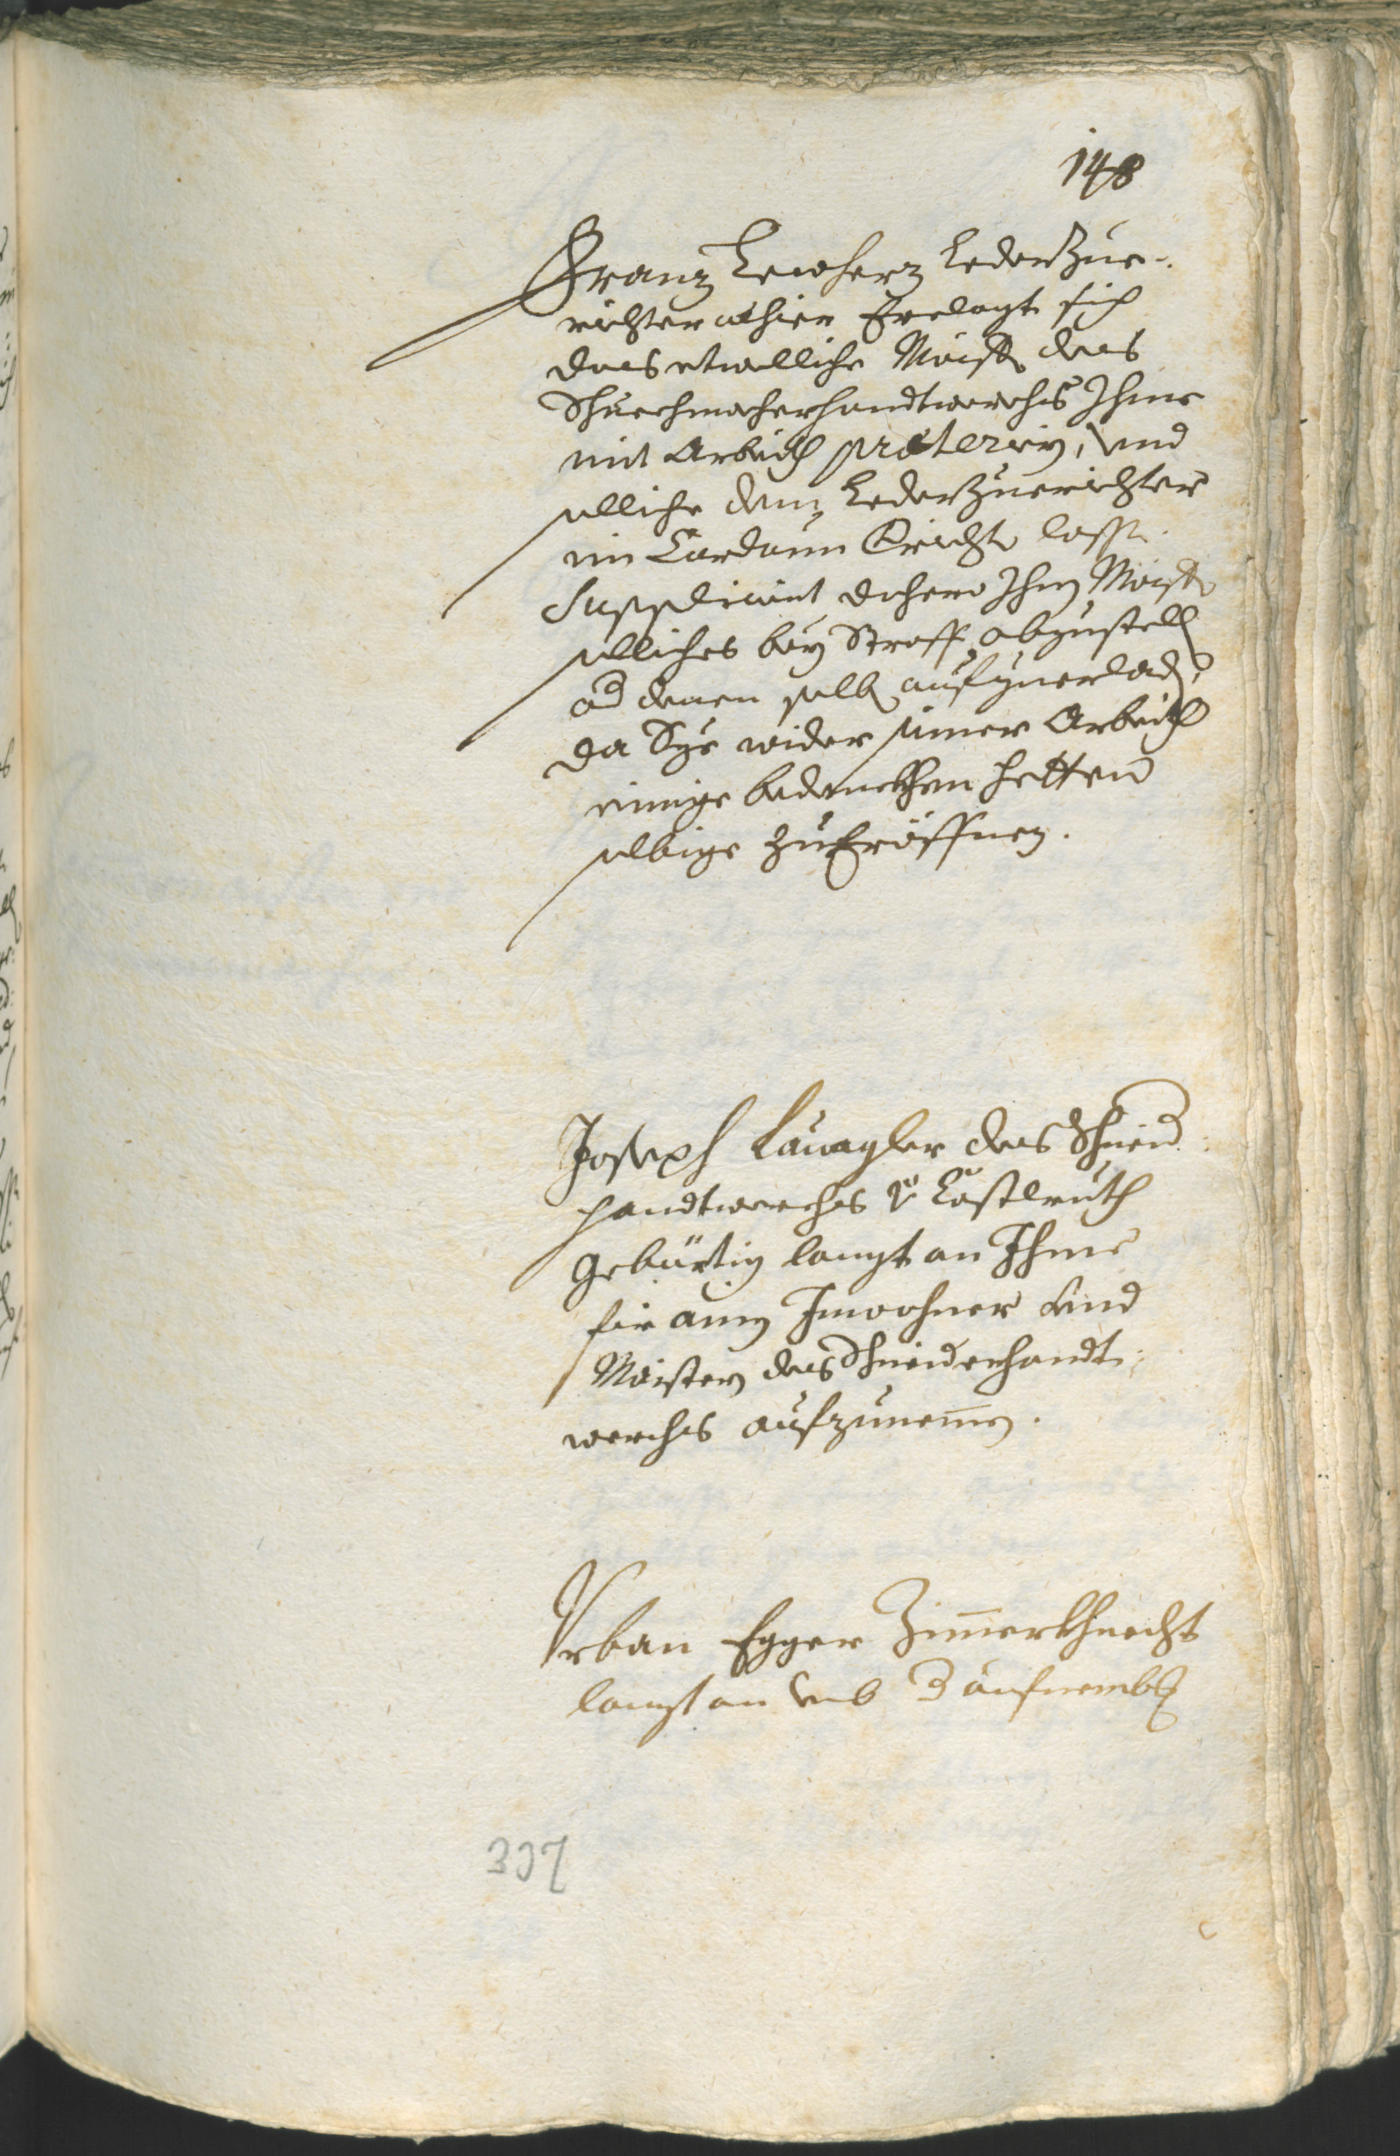 148
Franz Lewherz Lederzue-
richter alhier Erclagt sich
das etwelliche Maister des
Schuechmacherhandtwerchs Ihme
mit Arbeith præterirn, vnd
selliche dem Lederzuerichter
im Cardaun Erichten lassen.
Suppliciert dahero Ihn Maister
selliches bey Straff abzustelln
od denen selben aufzuerladen,
da Sye wider seiner Arbeith
einige bedenckhen hetten
selbige zu Eröffnen.
Joseph des Schneid
handtwerchs v Castlruth
gebürtig langt an Ihme
für ainen Inwohner vnd
Maistern des Schneiderhandt-
werchs aufzunemen.
Vrban Egger Zimerkhnecht
langt an vmb d aufnemben
337